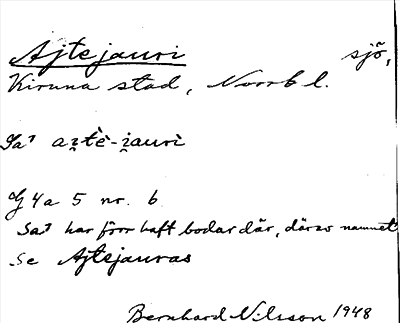 Ajtejauri sjö,
Kiruna stad, Norrb l.
Sa⁷ ai̯tè-i̯auri
Gg 4a 5 nr. 6
Sa⁷ har förr haft bodar där, därav namnet
Se Ajtejauras
Bernhard Nilsson 1948